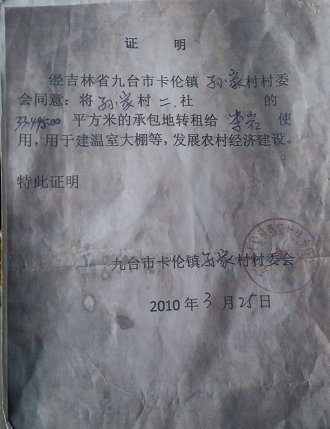 证 明
经吉林省九台市卡伦镇 孙家 村村委
会同意：将 孙家 村 二 社 的
33495.00 平方米的承包地转租给 李岩 使
用，用于建温室大棚等，发展农村经济建设。
特此证明
九台市卡伦镇 孙家 村村委会
2010 年 3 月 25 日